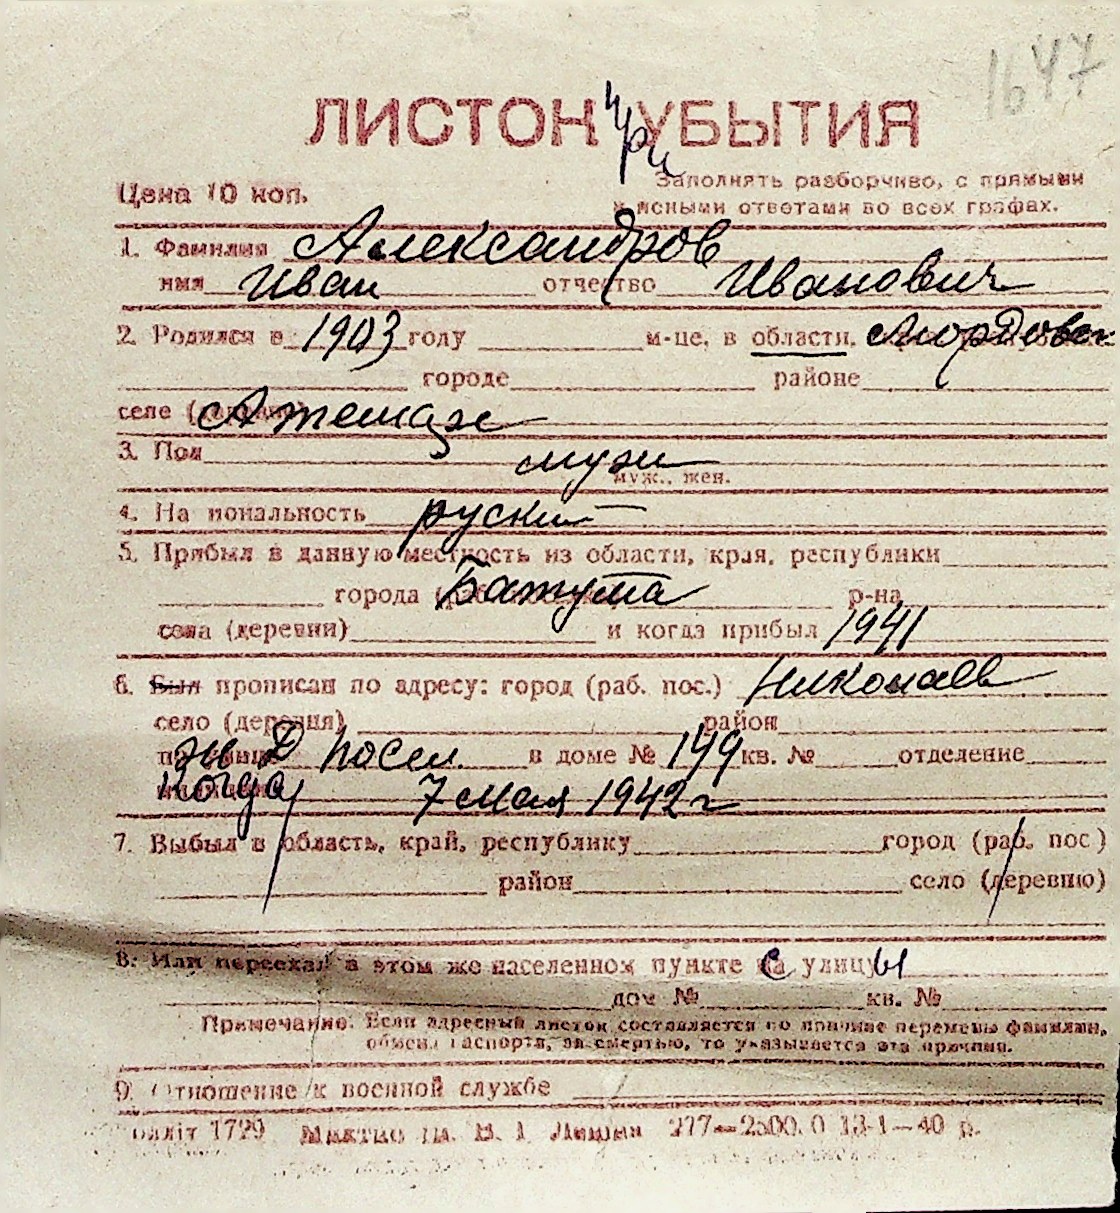 1647
ЛИСТОК при УБЫТИЯ
Цена 10 коп.
Заполнять разборчиво, с прямыми
и ясными ответами во всех графах.
1. Фамилия Александров
имя Иван отчество Иванович
2. Родился в 1903 году м-це, в области, Мордовск
городе районе
селе (деревне) Атемаре
3. Пол муж
муж., жен.
4. На иональность руский
5. Прибыл в данную местность из области, края, республики
города Батума р-на
села (деревни) и когда прибыл 1941
6. Был прописан по адресу: город (раб. пос.) Николаев
село (деревня) район
по улице жд посел. в доме № 149 кв. № отделение
милиции Когда 7 мая 1942 г
7. Выбыл в область, край, республику город (раб. пос)
район село (деревню)
8. Или переехал в этом же населенном пункте с улицы
дом № кв. №
Примечание: Если адресный листок составляется по причине перемены фамилии,
обмена паспорта, за смертью, то указывается эта причина.
9. Отношение к военной службе
1729 277—2500.0 13-1—40 р.